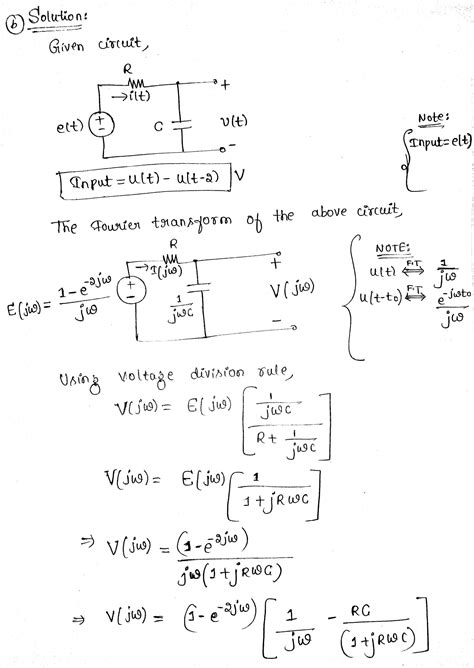 (b) Solution:
Given circuit,
R
→i(t)
+
e(t)
+
-
C
v(t)
-
Note:
Input = e(t)
Input = u(t) - u(t-2) V
The Fourier transform of the above circuit,
R
→I(jω)
+
E(jω) = (1 - e^-2jω)/jω
+
-
1/jωC
V(jω)
-
NOTE:
u(t) ⟺ F.T. 1/jω
u(t-t₀) ⟺ F.T. e^-jωt₀/jω
Using voltage division rule,
V(jω) = E(jω) [ (1/jωC) / (R + 1/jωC) ]
V(jω) = E(jω) [ 1 / (1 + jRωC) ]
⇒ V(jω) = (1 - e^-2jω) / jω(1 + jRωC)
⇒ V(jω) = (1 - e^-2jω) [ 1/jω - RC/(1 + jRωC) ]